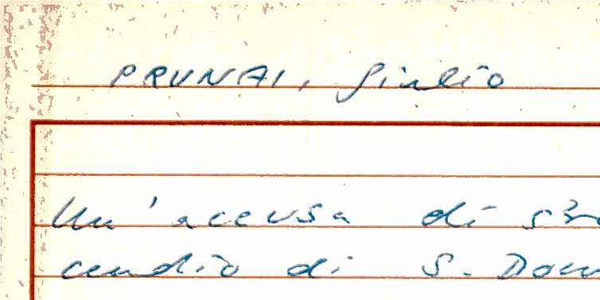 PRUNAI, Giulio
Un'accusa di
cendio di S. Dom